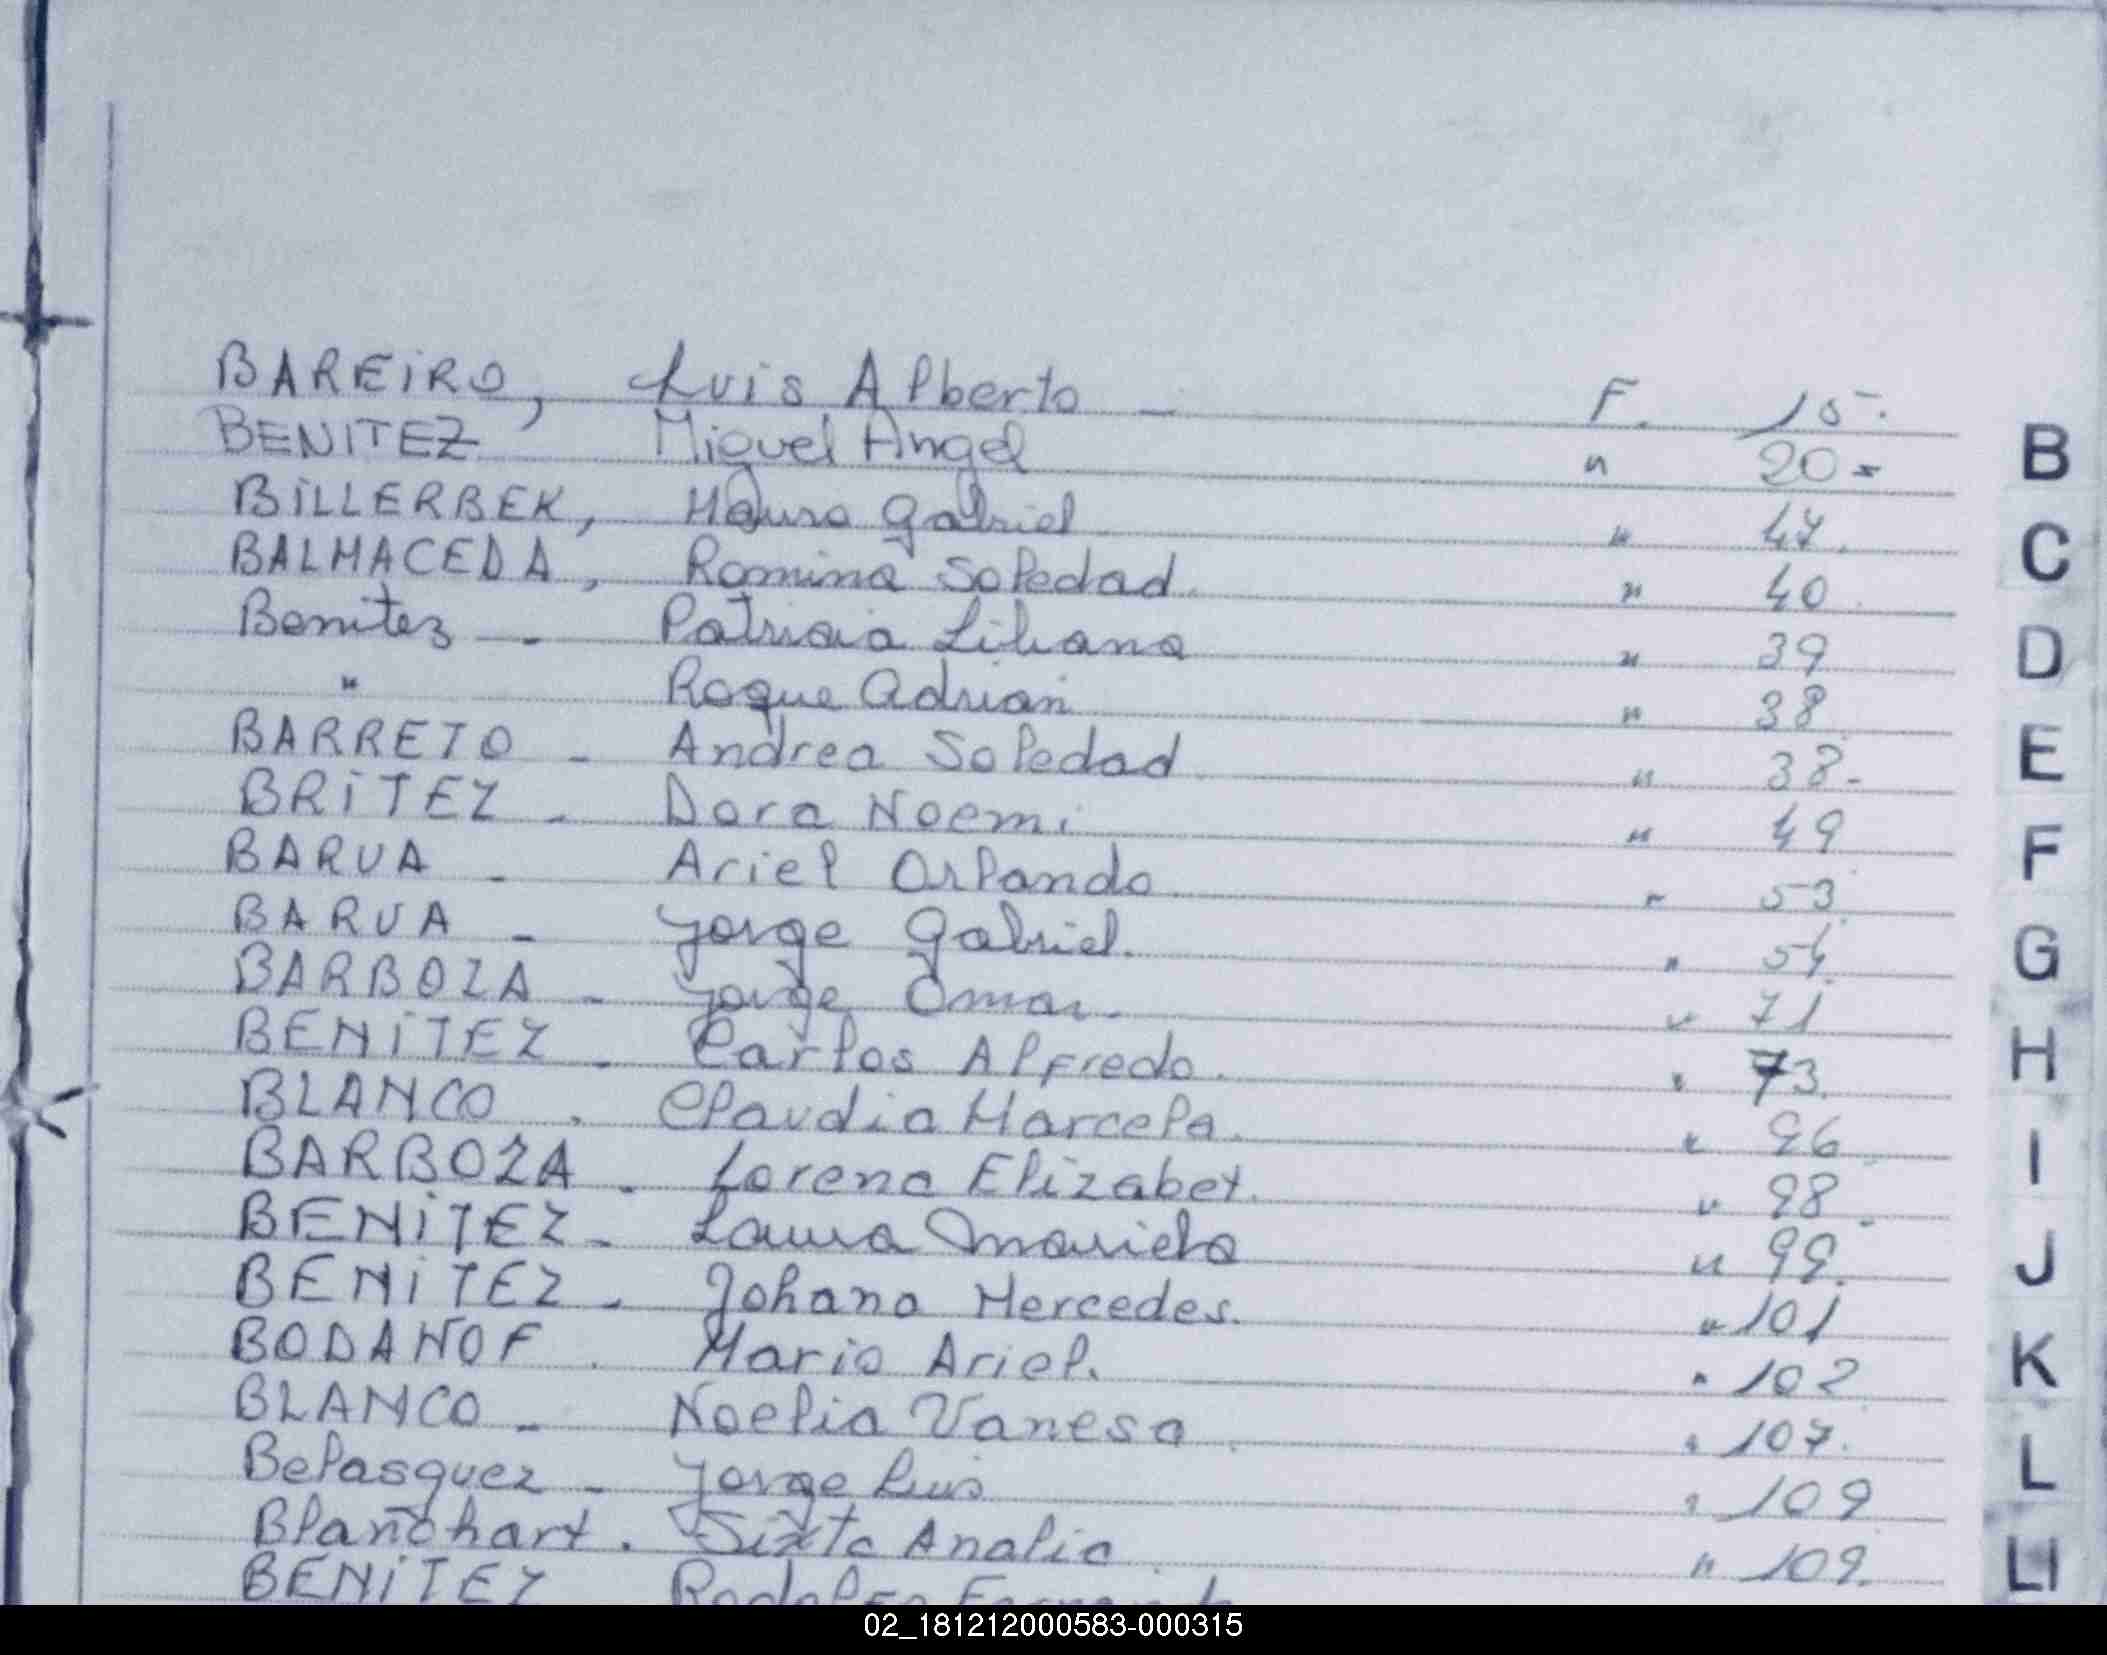 BAREIRO, Luis Alberto - F. 15-.
BENITEZ Miguel Angel " 20-
BILLERBEK, Mauro Gabriel " 47.
BALMACEDA, Romina Soledad. " 40.
Benitez - Patricia Liliana " 39
" Roque Adrian " 38.
BARRETO - Andrea Soledad. " 38.-
BRITEZ - Dora Noemi " 49
BARUA - Ariel Orlando " 53
BARUA - Jorge Gabriel. " 54
BARBOZA - Jorge Omar. " 71
BENITEZ - Carlos Alfredo. " 73.
BLANCO . Claudia Marcela. " 96
BARBOZA . Lorena Elizabet. " 98
BENITEZ - Laura Mariela " 99.
BENITEZ - Johana Mercedes. " 101
BODANOF . Mario Ariel. " 102
BLANCO - Noelia Vanesa. " 107.
Belasquez - Jorge Luis " 109
Blanchart . Sixta Analia " 109.
BENITEZ
B
C
D
E
F
G
H
I
J
K
L
Ll
02_181212000583-000315